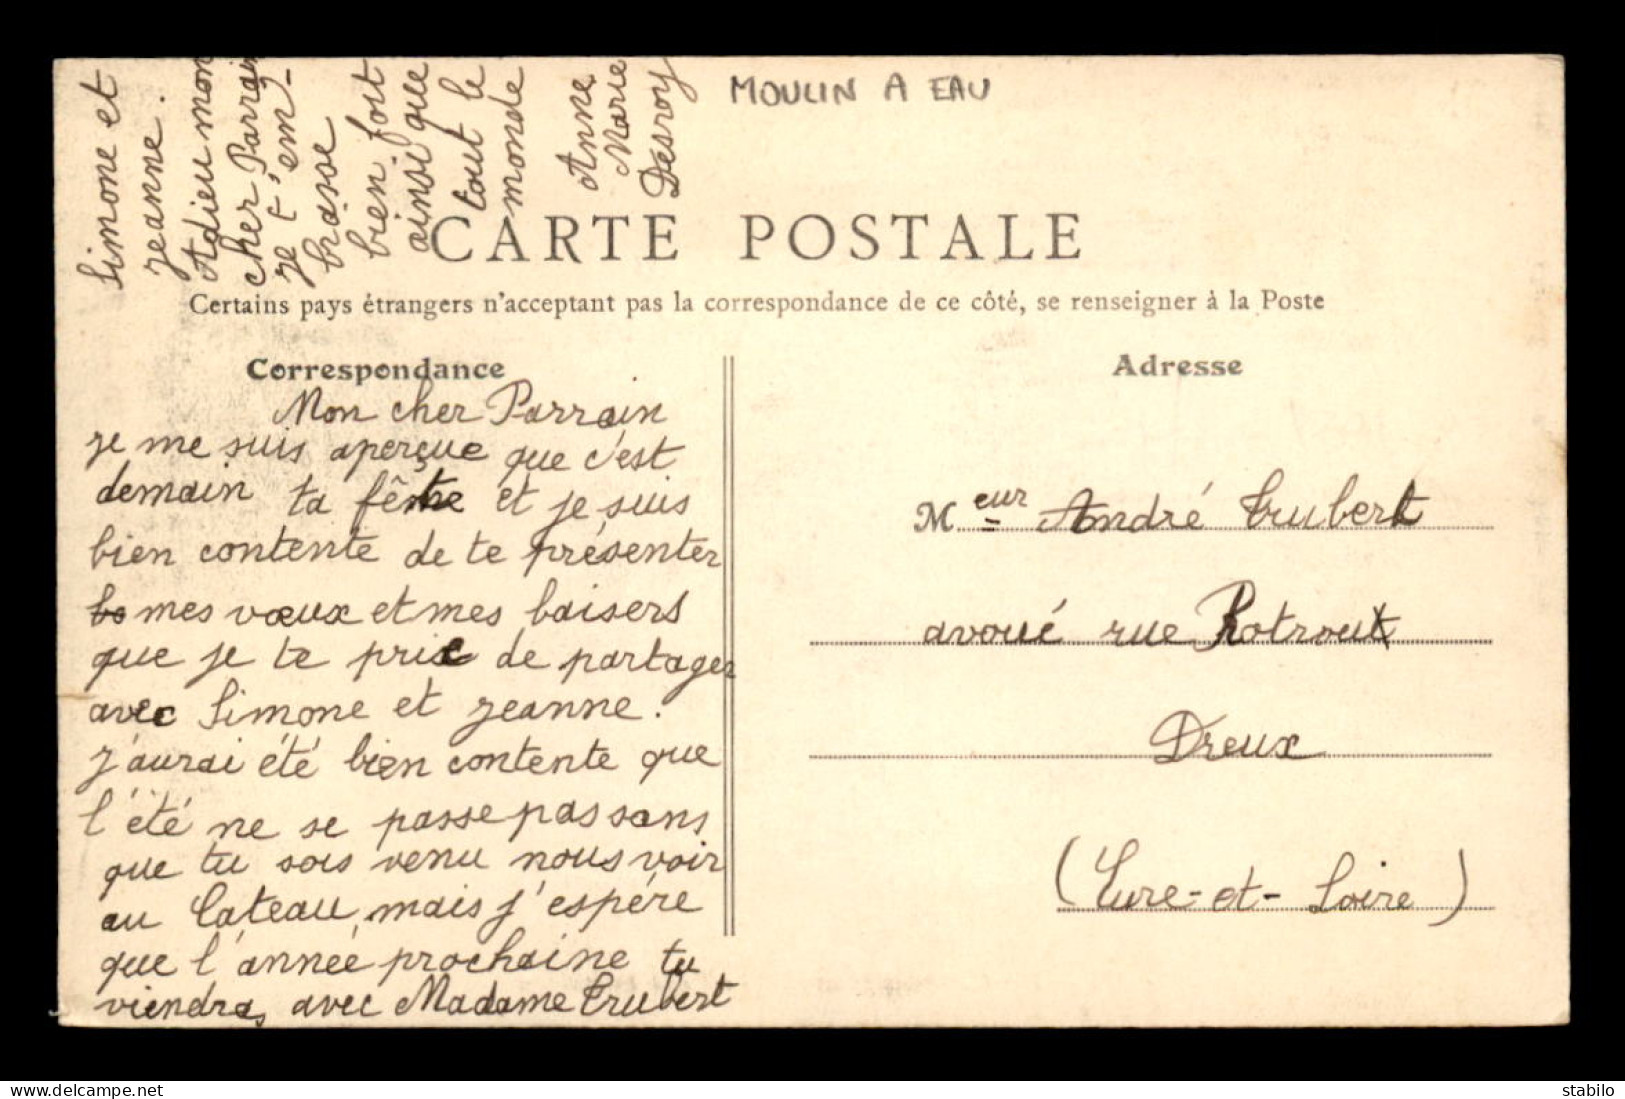 MOULIN A EAU
CARTE POSTALE
Certains pays étrangers n'acceptant pas la correspondance de ce côté, se renseigner à la Poste
Correspondance
Mon cher Parrain
je me suis aperçue que c'est
demain ta fête et je suis
bien contente de te présenter
mes vœux et mes baisers
que je te prie de partager
avec Simone et jeanne.
J'aurai été bien contente que
l'été ne se passe pas sans
que tu sois venu nous voir
au Cateau, mais j'espére
que l'année prochaine tu
viendras avec Madame Trubert
Simone et
jeanne.
Adieu mon
cher Parrain
je t'em-
brasse
bien fort
ainsi que
tout le
monde
Anne
Marie
Desroy
Adresse
Meur André Trubert
avoué rue Rotrou
Dreux
(Eure-et-Loire)
stabilo
www.delcampe.net